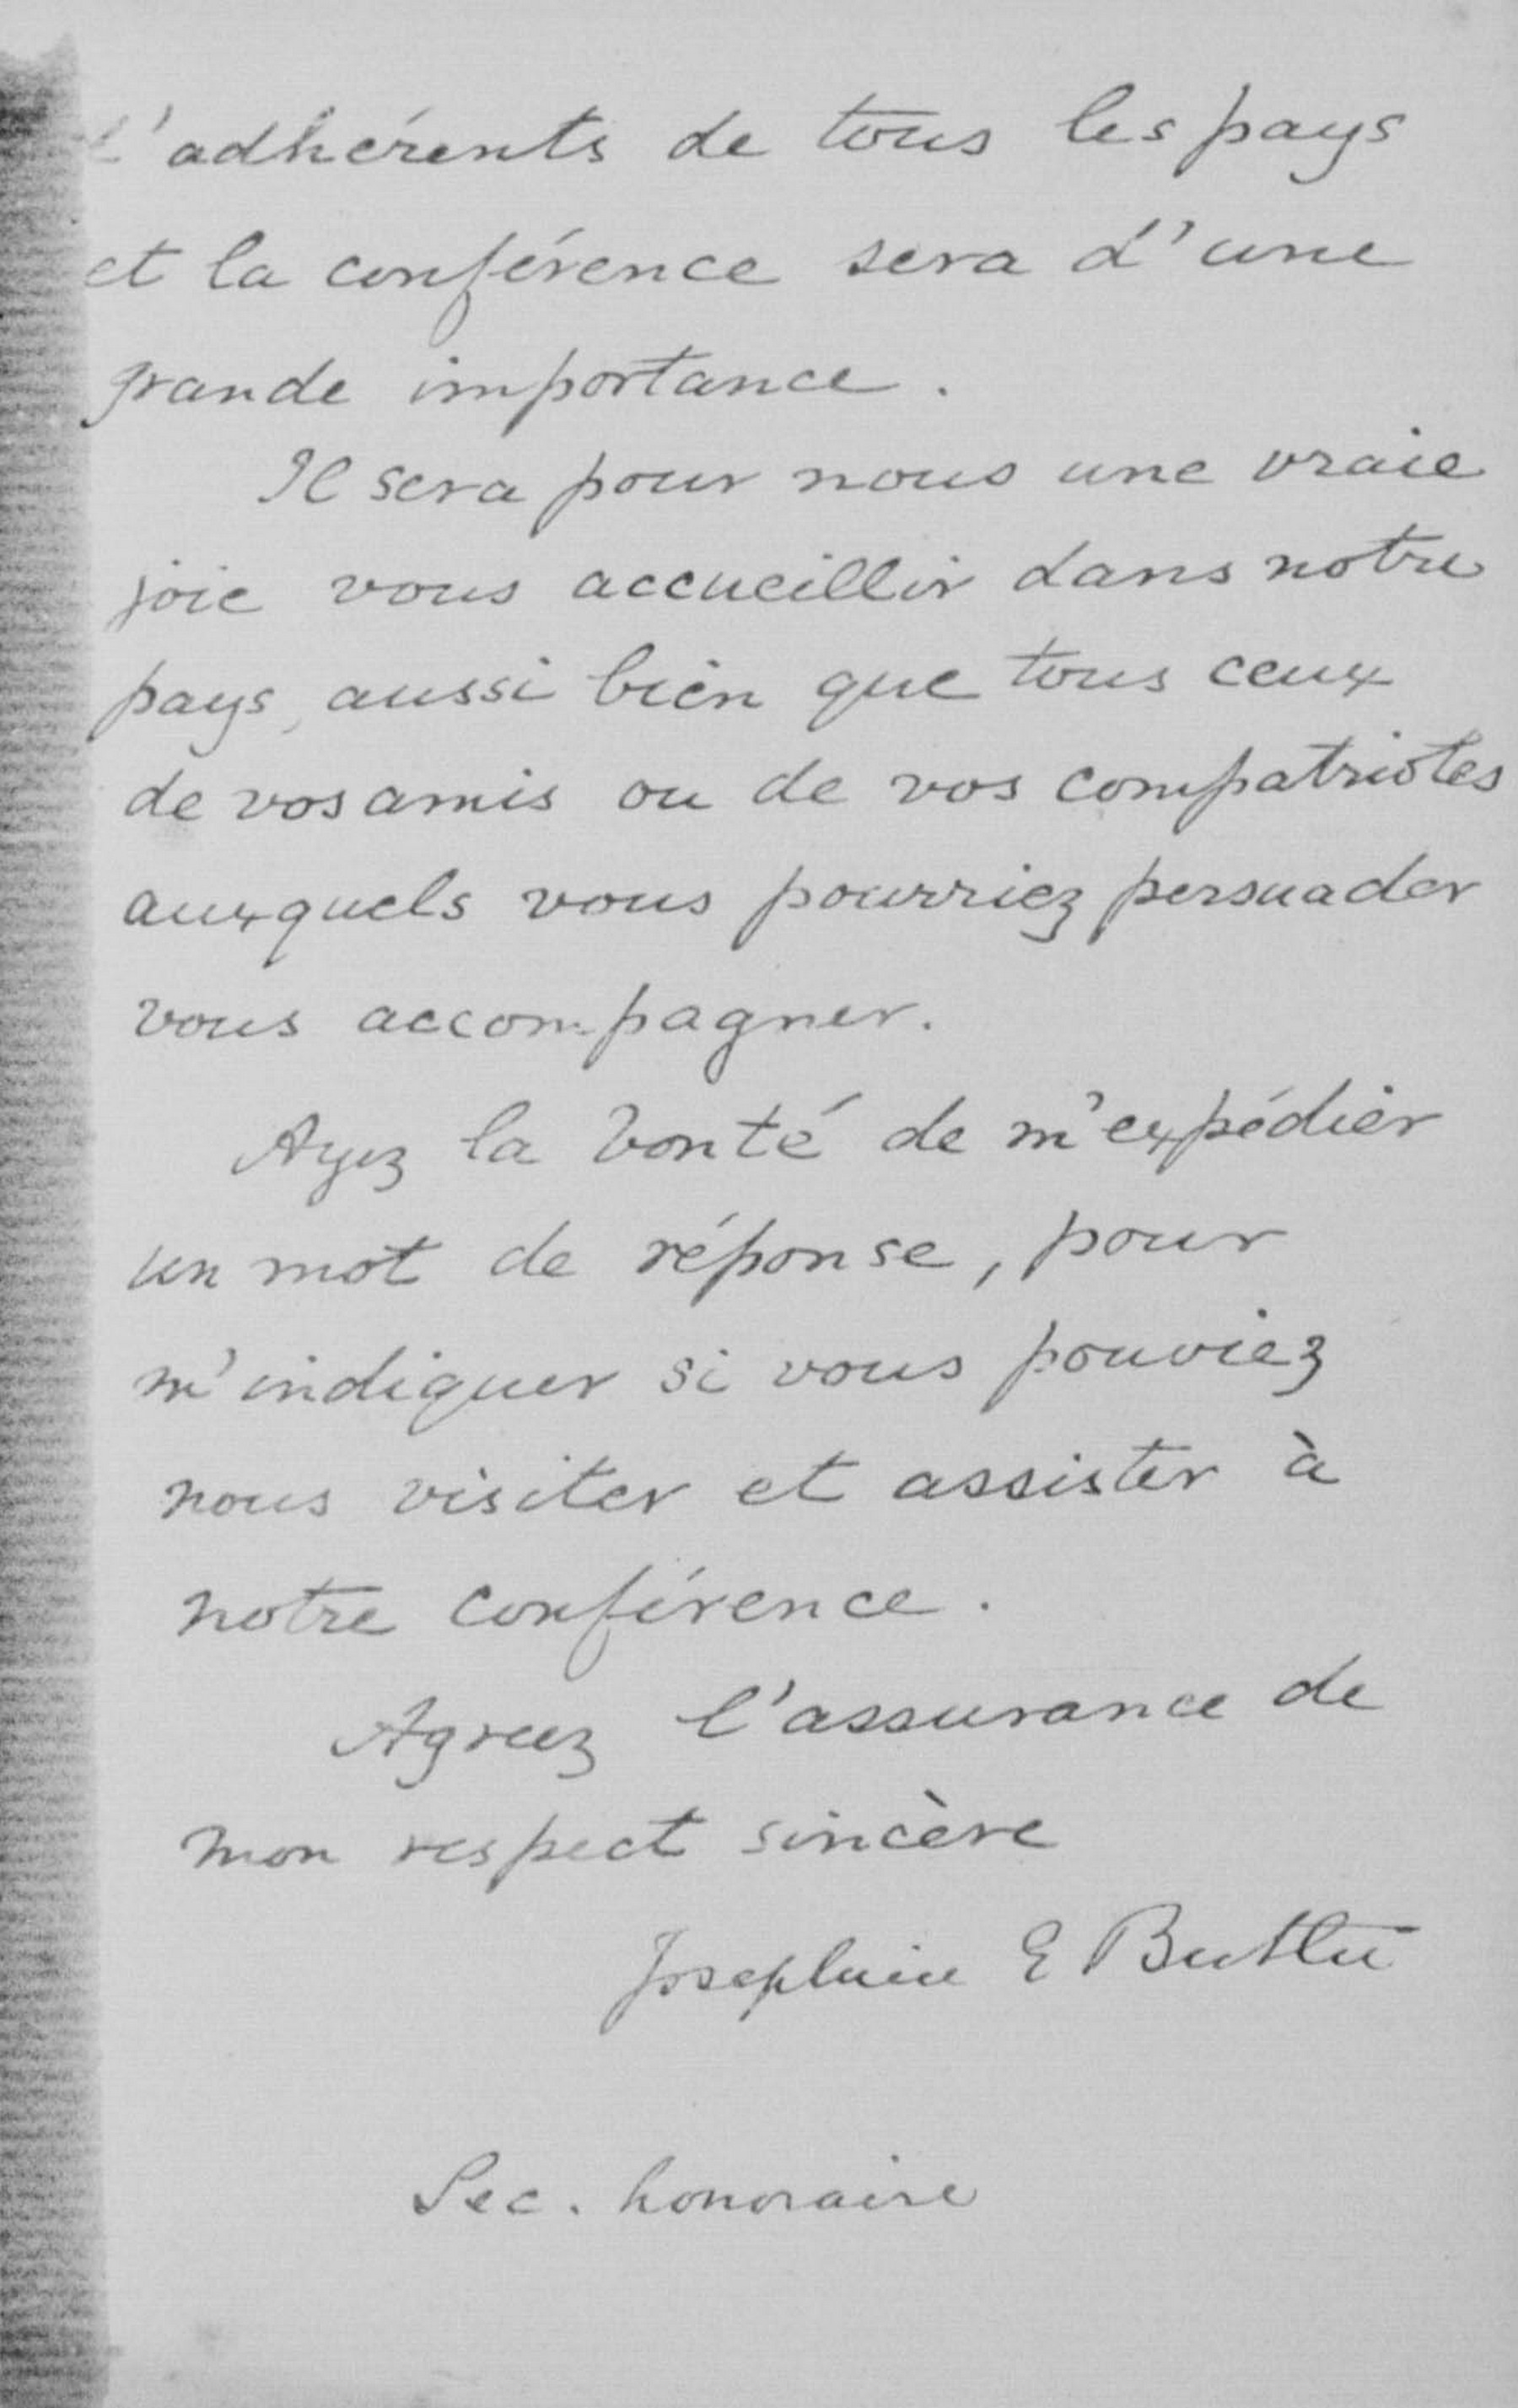 d'adhérents de tous les pays
et la conférence sera d'une
grande importance.
Il sera pour nous une vraie
joie vous accueillir dans notre
pays, aussi bien que tous ceux
de vos amis ou de vos compatriotes
auxquels vous pourriez persuader
vous accompagner.
Ayez la bonté de m'expédier
un mot de réponse, pour
m'indiquer si vous pouviez
nous visiter et assister à
notre conférence.
Agreez l'assurance de
mon respect sincère
Josephine E Butler
Sec. honoraire